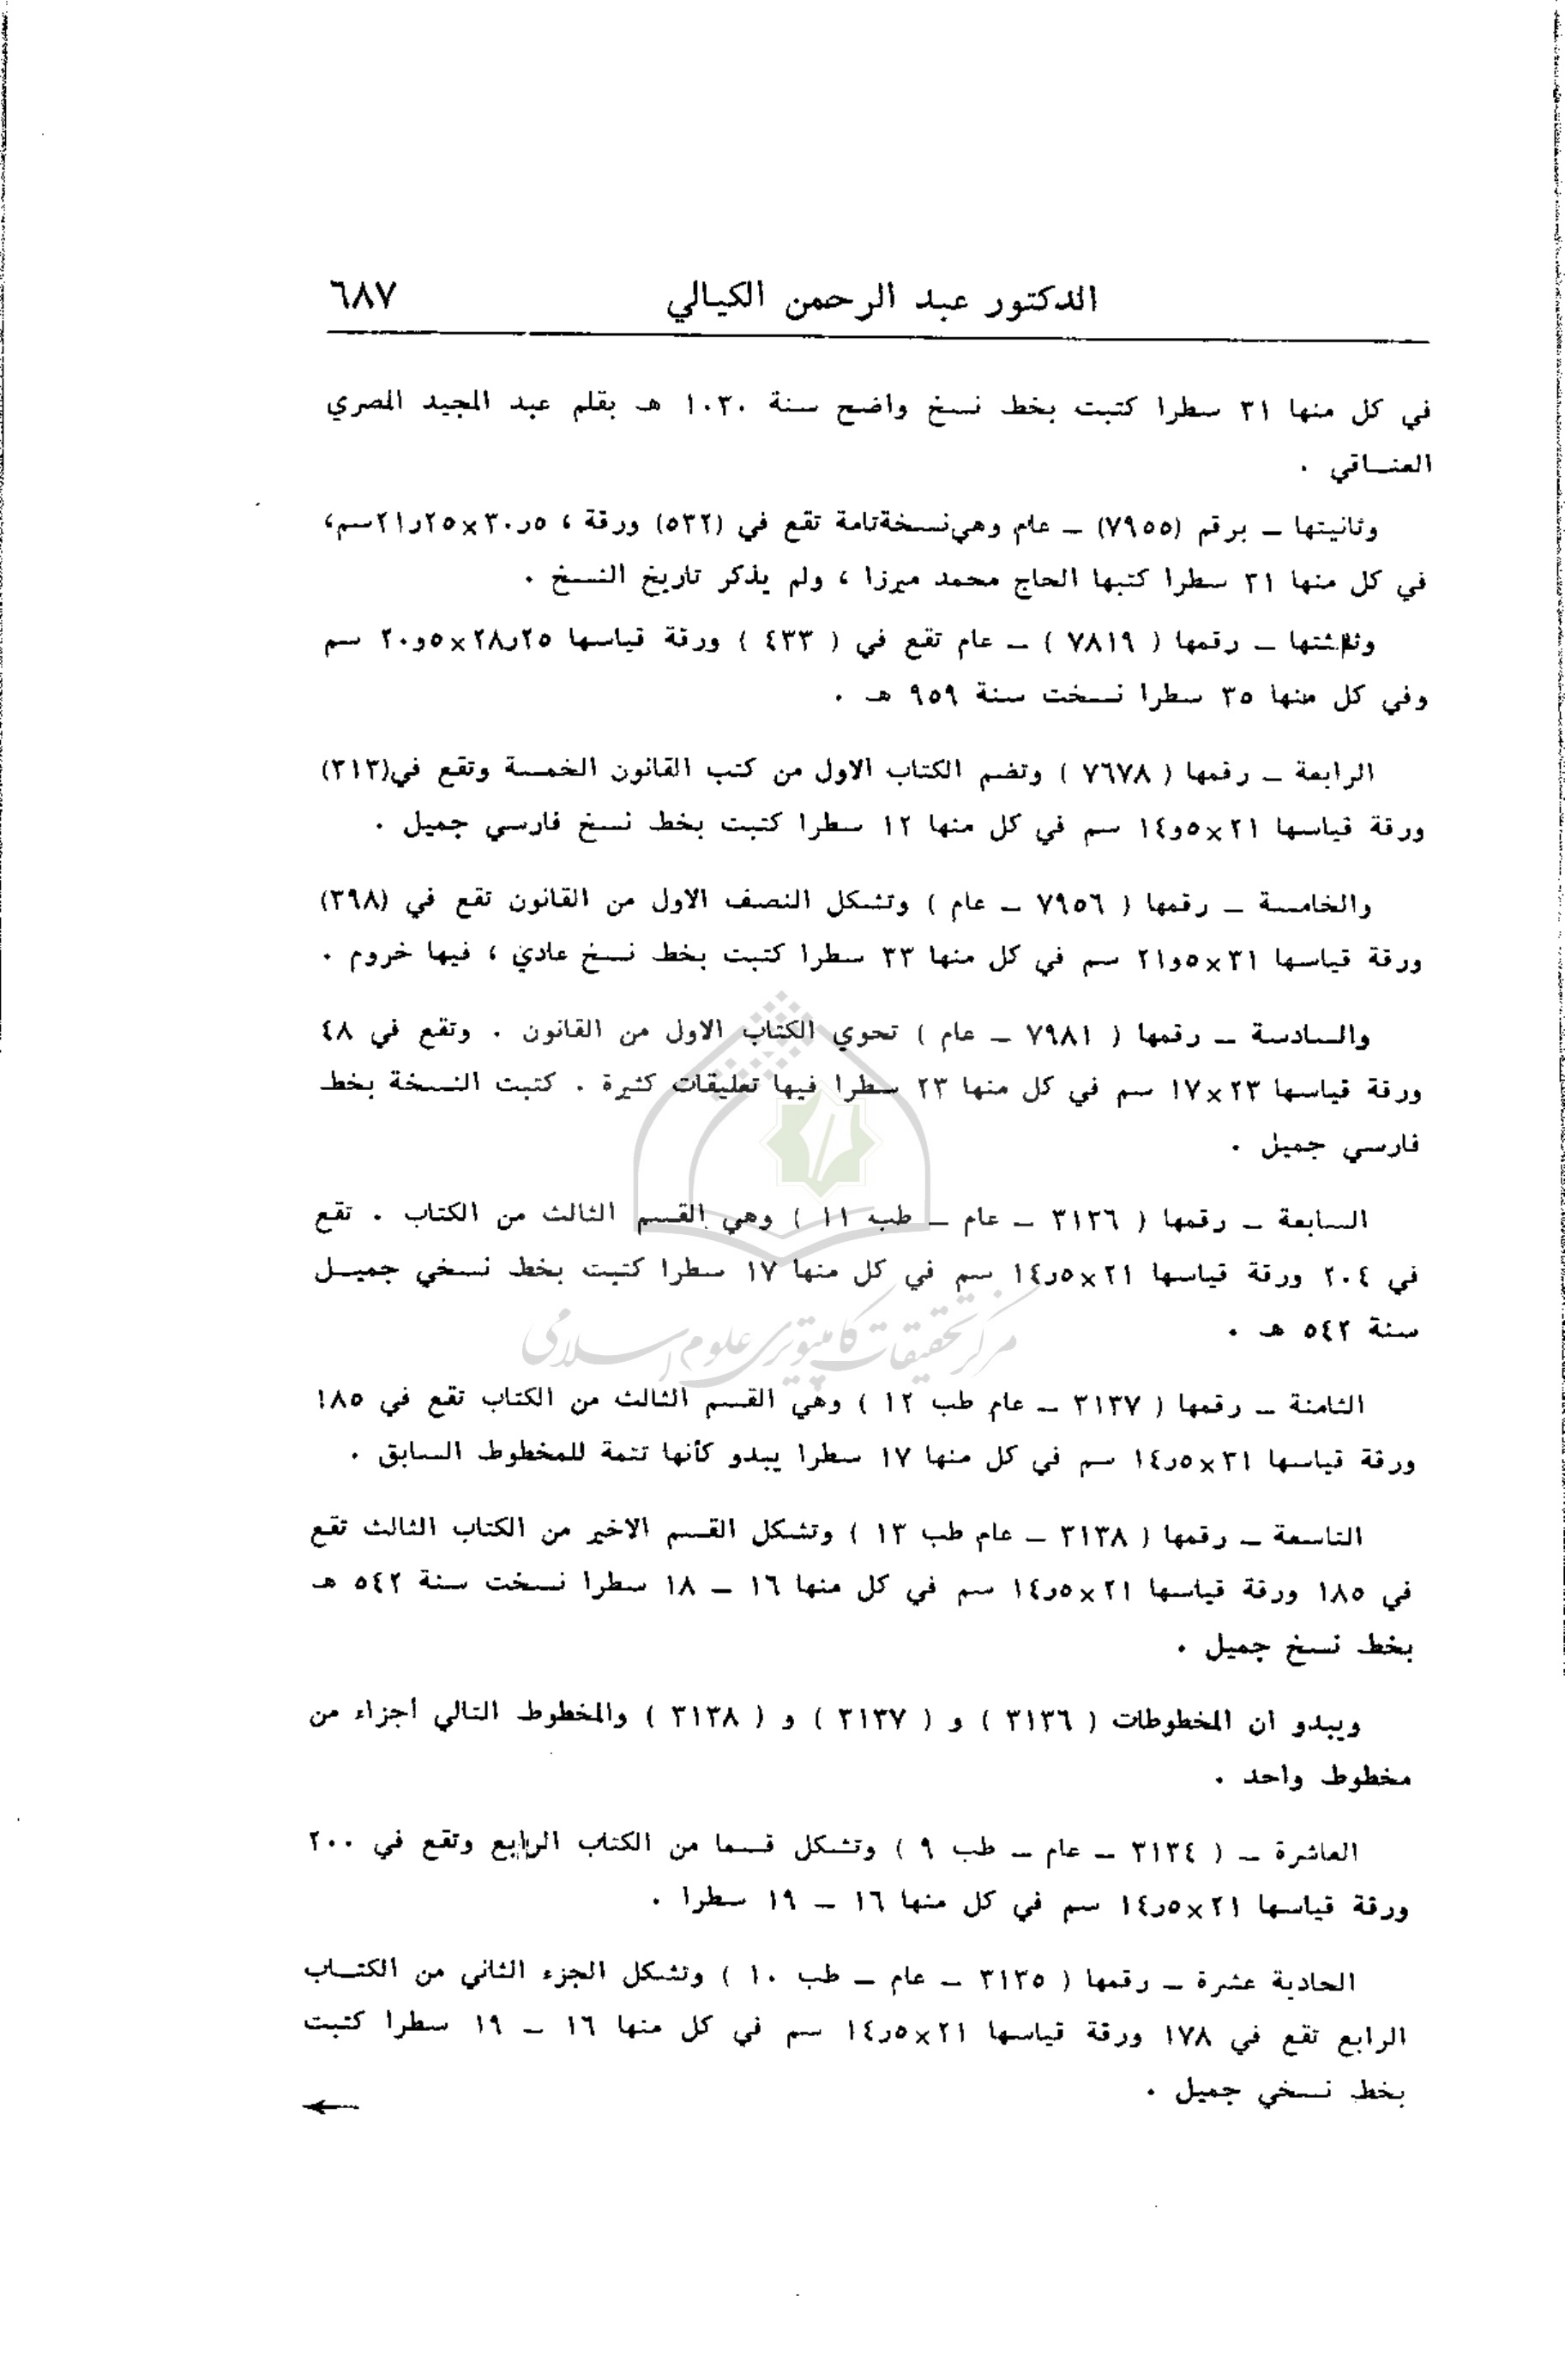 الدكتور عبد الرحمن الكيالي ٦٨٧
في كل منها ٣١ سطرا كتبت بخط نسخ واضح سنة ١٠٣٠ هـ بقلم عبد المجيد المصري
العنــاقي .
وثانيتها ــ برقم (٧٩٥٥) ــ عام وهي نسخة تامة تقع في (٥٣٢) ورقة ، ٥ر٣٠×٢٥ر٢١سم،
في كل منها ٣١ سطرا كتبها الحاج محمد ميرزا ، ولم يذكر تاريخ النسخ .
وثالثتها ــ رقمها ( ٧٨١٩ ) ــ عام تقع في ( ٤٣٣ ) ورقة قياسها ٢٥ر٢٨×٥و٢٠ سم
وفي كل منها ٣٥ سطرا نسخت سنة ٩٥٩ هـ .
الرابعة ــ رقمها ( ٧٦٧٨ ) وتضم الكتاب الاول من كتب القانون الخمسة وتقع في(٣١٣)
ورقة قياسها ٢١×٥و١٤ سم في كل منها ١٢ سطرا كتبت بخط نسخ فارسي جميل .
والخامسة ــ رقمها ( ٧٩٥٦ ــ عام ) وتشكل النصف الاول من القانون تقع في (٣٩٨)
ورقة قياسها ٣١×٥و٢١ سم في كل منها ٣٣ سطرا كتبت بخط نسخ عادي ، فيها خروم .
والسادسة ــ رقمها ( ٧٩٨١ ــ عام ) تحوي الكتاب الاول من القانون . وتقع في ٤٨
ورقة قياسها ٢٣×١٧ سم في كل منها ٢٣ سطرا فيها تعليقات كثيرة . كتبت النسخة بخط
فارسي جميل .
السابعة ــ رقمها ( ٣١٣٦ ــ عام ــ طب ١١ ) وهي القسم الثالث من الكتاب . تقع
في ٢٠٤ ورقة قياسها ٢١×٥ر١٤ سم في كل منها ١٧ سطرا كتبت بخط نسخي جميــل
سنة ٥٤٢ هـ .
مركز تحقيقات كامپيوترى علوم اسلامى
الثامنة ــ رقمها ( ٣١٣٧ ــ عام طب ١٢ ) وهي القسم الثالث من الكتاب تقع في ١٨٥
ورقة قياسها ٣١×٥ر١٤ سم في كل منها ١٧ سطرا يبدو كأنها تتمة للمخطوط السابق .
التاسعة ــ رقمها ( ٣١٣٨ ــ عام طب ١٣ ) وتشكل القسم الاخير من الكتاب الثالث تقع
في ١٨٥ ورقة قياسها ٢١×٥ر١٤ سم في كل منها ١٦ ــ ١٨ سطرا نسخت سنة ٥٤٢ هـ
بخط نسخ جميل .
ويبدو ان المخطوطات ( ٣١٣٦ ) و ( ٣١٣٧ ) و ( ٣١٣٨ ) والمخطوط التالي أجزاء من
مخطوط واحد .
العاشرة ــ ( ٣١٣٤ ــ عام ــ طب ٩ ) وتشكل قسما من الكتاب الرابع وتقع في ٢٠٠
ورقة قياسها ٢١×٥ر١٤ سم في كل منها ١٦ ــ ١٩ سطرا .
الحادية عشرة ــ رقمها ( ٣١٣٥ ــ عام ــ طب ١٠ ) وتشكل الجزء الثاني من الكتــاب
الرابع تقع في ١٧٨ ورقة قياسها ٢١×٥ر١٤ سم في كل منها ١٦ ــ ١٩ سطرا كتبت
بخط نسخي جميل .